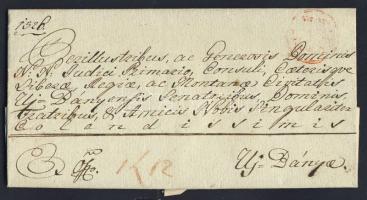 1326.
Perillustribus, ac Generosis Dominis
N. N. Judici Primario, Consuli, Cæterisqve
Liberæ, Regiæ, ac Montanæ Civitatis
Uj-Banyensis Senatoribus, Dominis,
Fratribus, & Amicis Nobis Singulariter
Colendissimis
Ex Offo.
Uj-Bányæ.